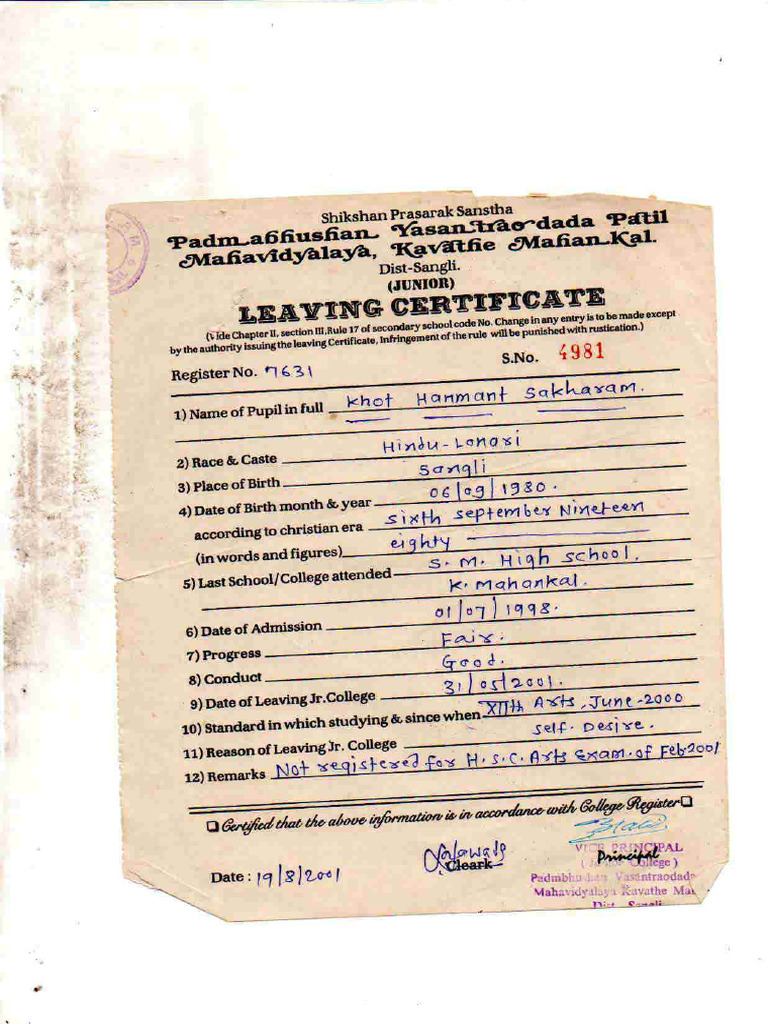 Shikshan Prasarak Sanstha
Padmabhushan Vasantraodada Patil
Mahavidyalaya, Kavathe Mahankal.
Dist-Sangli.
(JUNIOR)
LEAVING CERTIFICATE
(Vide Chapter II, section III, Rule 17 of secondary school code No. Change in any entry is to be made except
by the authority issuing the leaving Certificate, Infringement of the rule will be punished with rustication.)
S.No. 4981
Register No. 7631
1) Name of Pupil in full Khot Hanmant Sakharam.
2) Race & Caste Hindu-Lonari
3) Place of Birth Sangli
4) Date of Birth month & year 06/09/1980.
according to christian era sixth september Nineteen
(in words and figures) eighty
5) Last School/College attended S. M. High School.
K. Mahankal.
6) Date of Admission 01/07/1998.
7) Progress Fair.
8) Conduct Good.
9) Date of Leaving Jr. College 31/05/2001.
10) Standard in which studying & since when XIIth Arts, June-2000
11) Reason of Leaving Jr. College self. Desire.
12) Remarks Not registered for H.S.C. Arts Exam. of Feb 2001
Certified that the above information is in accordance with College Register
Date : 19/8/2001
Cleark
Principal
VICE PRINCIPAL
College )
Padmbhushan Vasantraodada
Mahavidyalaya Kavathe Ma
Dist. Sangli